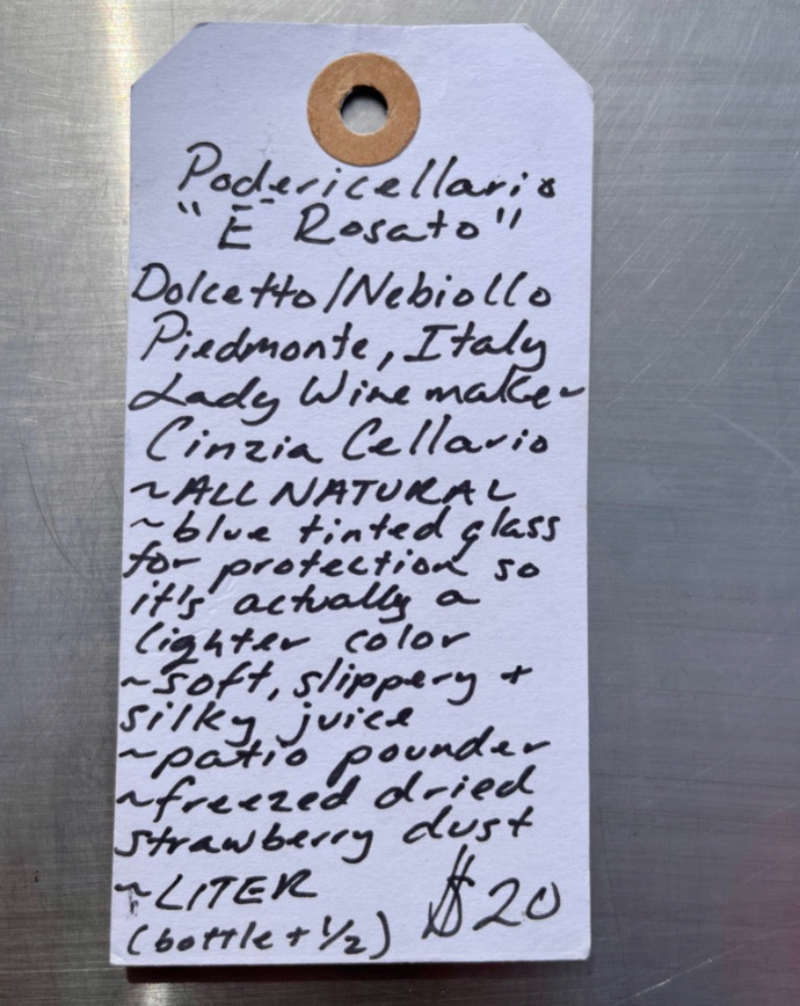 Podericellario
"É Rosato"
Dolcetto/Nebiollo
Piedmonte, Italy
Lady Winemaker
Cinzia Cellario
~ALL NATURAL
~blue tinted glass
for protection so
it's actually a
lighter color
~soft, slippery +
silky juice
~patio pounder
~freezed dried
strawberry dust
~LITER
(bottle + 1/2) $20